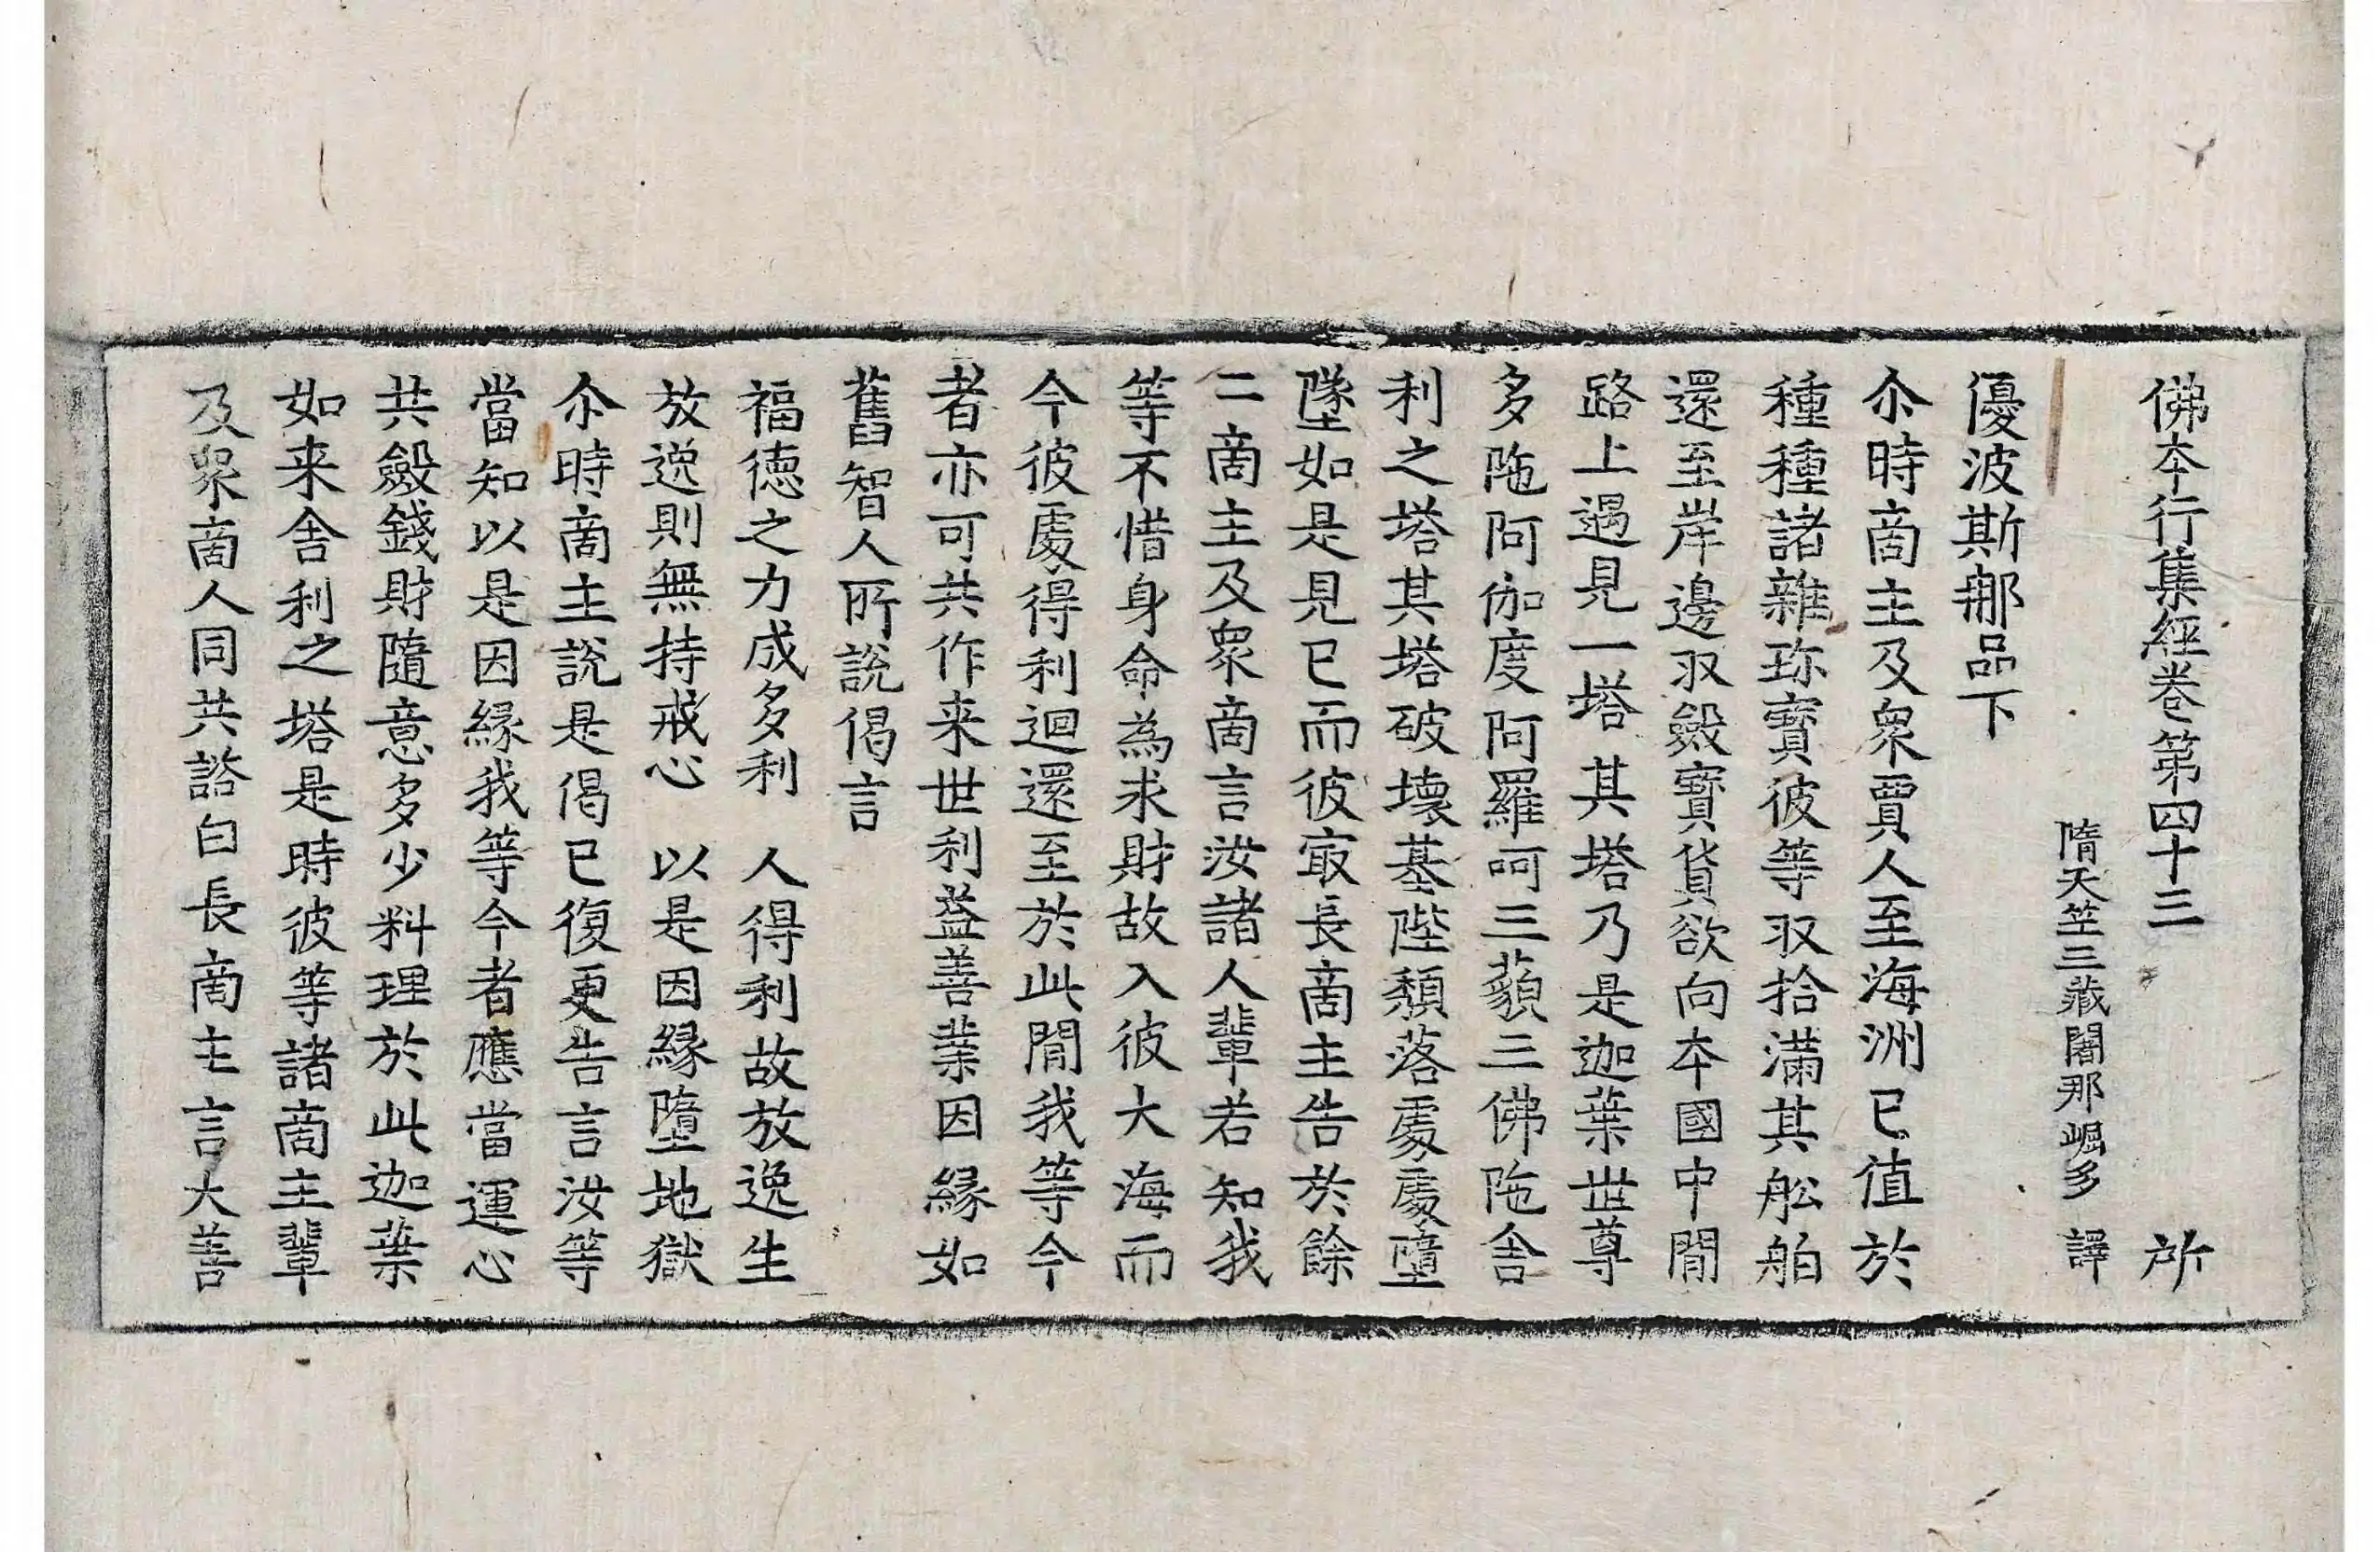 佛本行集經卷第四十三　所
隋天竺三藏闍那崛多　譯
優波斯那品下
尒時商主及衆賈人至海洲已值於
種種諸雜珎寶彼等取拾滿其舩舶
還至岸邊収斂寶貨欲向本國中閒
路上遇見一塔其塔乃是迦葉世尊
多陁阿伽度阿羅呵三藐三佛陁舍
利之塔其塔破壞基陛頹落處處墮
墜如是見已而彼㝡長商主告於餘
二商主及衆商言汝諸人輩若知我
等不惜身命為求財故入彼大海而
今彼處得利迴還至於此閒我等今
者亦可共作来世利益善業因緣如
舊智人所說偈言
福德之力成多利　人得利故放逸生
放逸則無持戒心　以是因緣墮地獄
尒時商主說是偈已復更告言汝等
當知以是因緣我等今者應當運心
共斂錢財隨意多少料理於此迦葉
如来舍利之塔是時彼等諸商主輩
及衆商人同共諮白長商主言大善